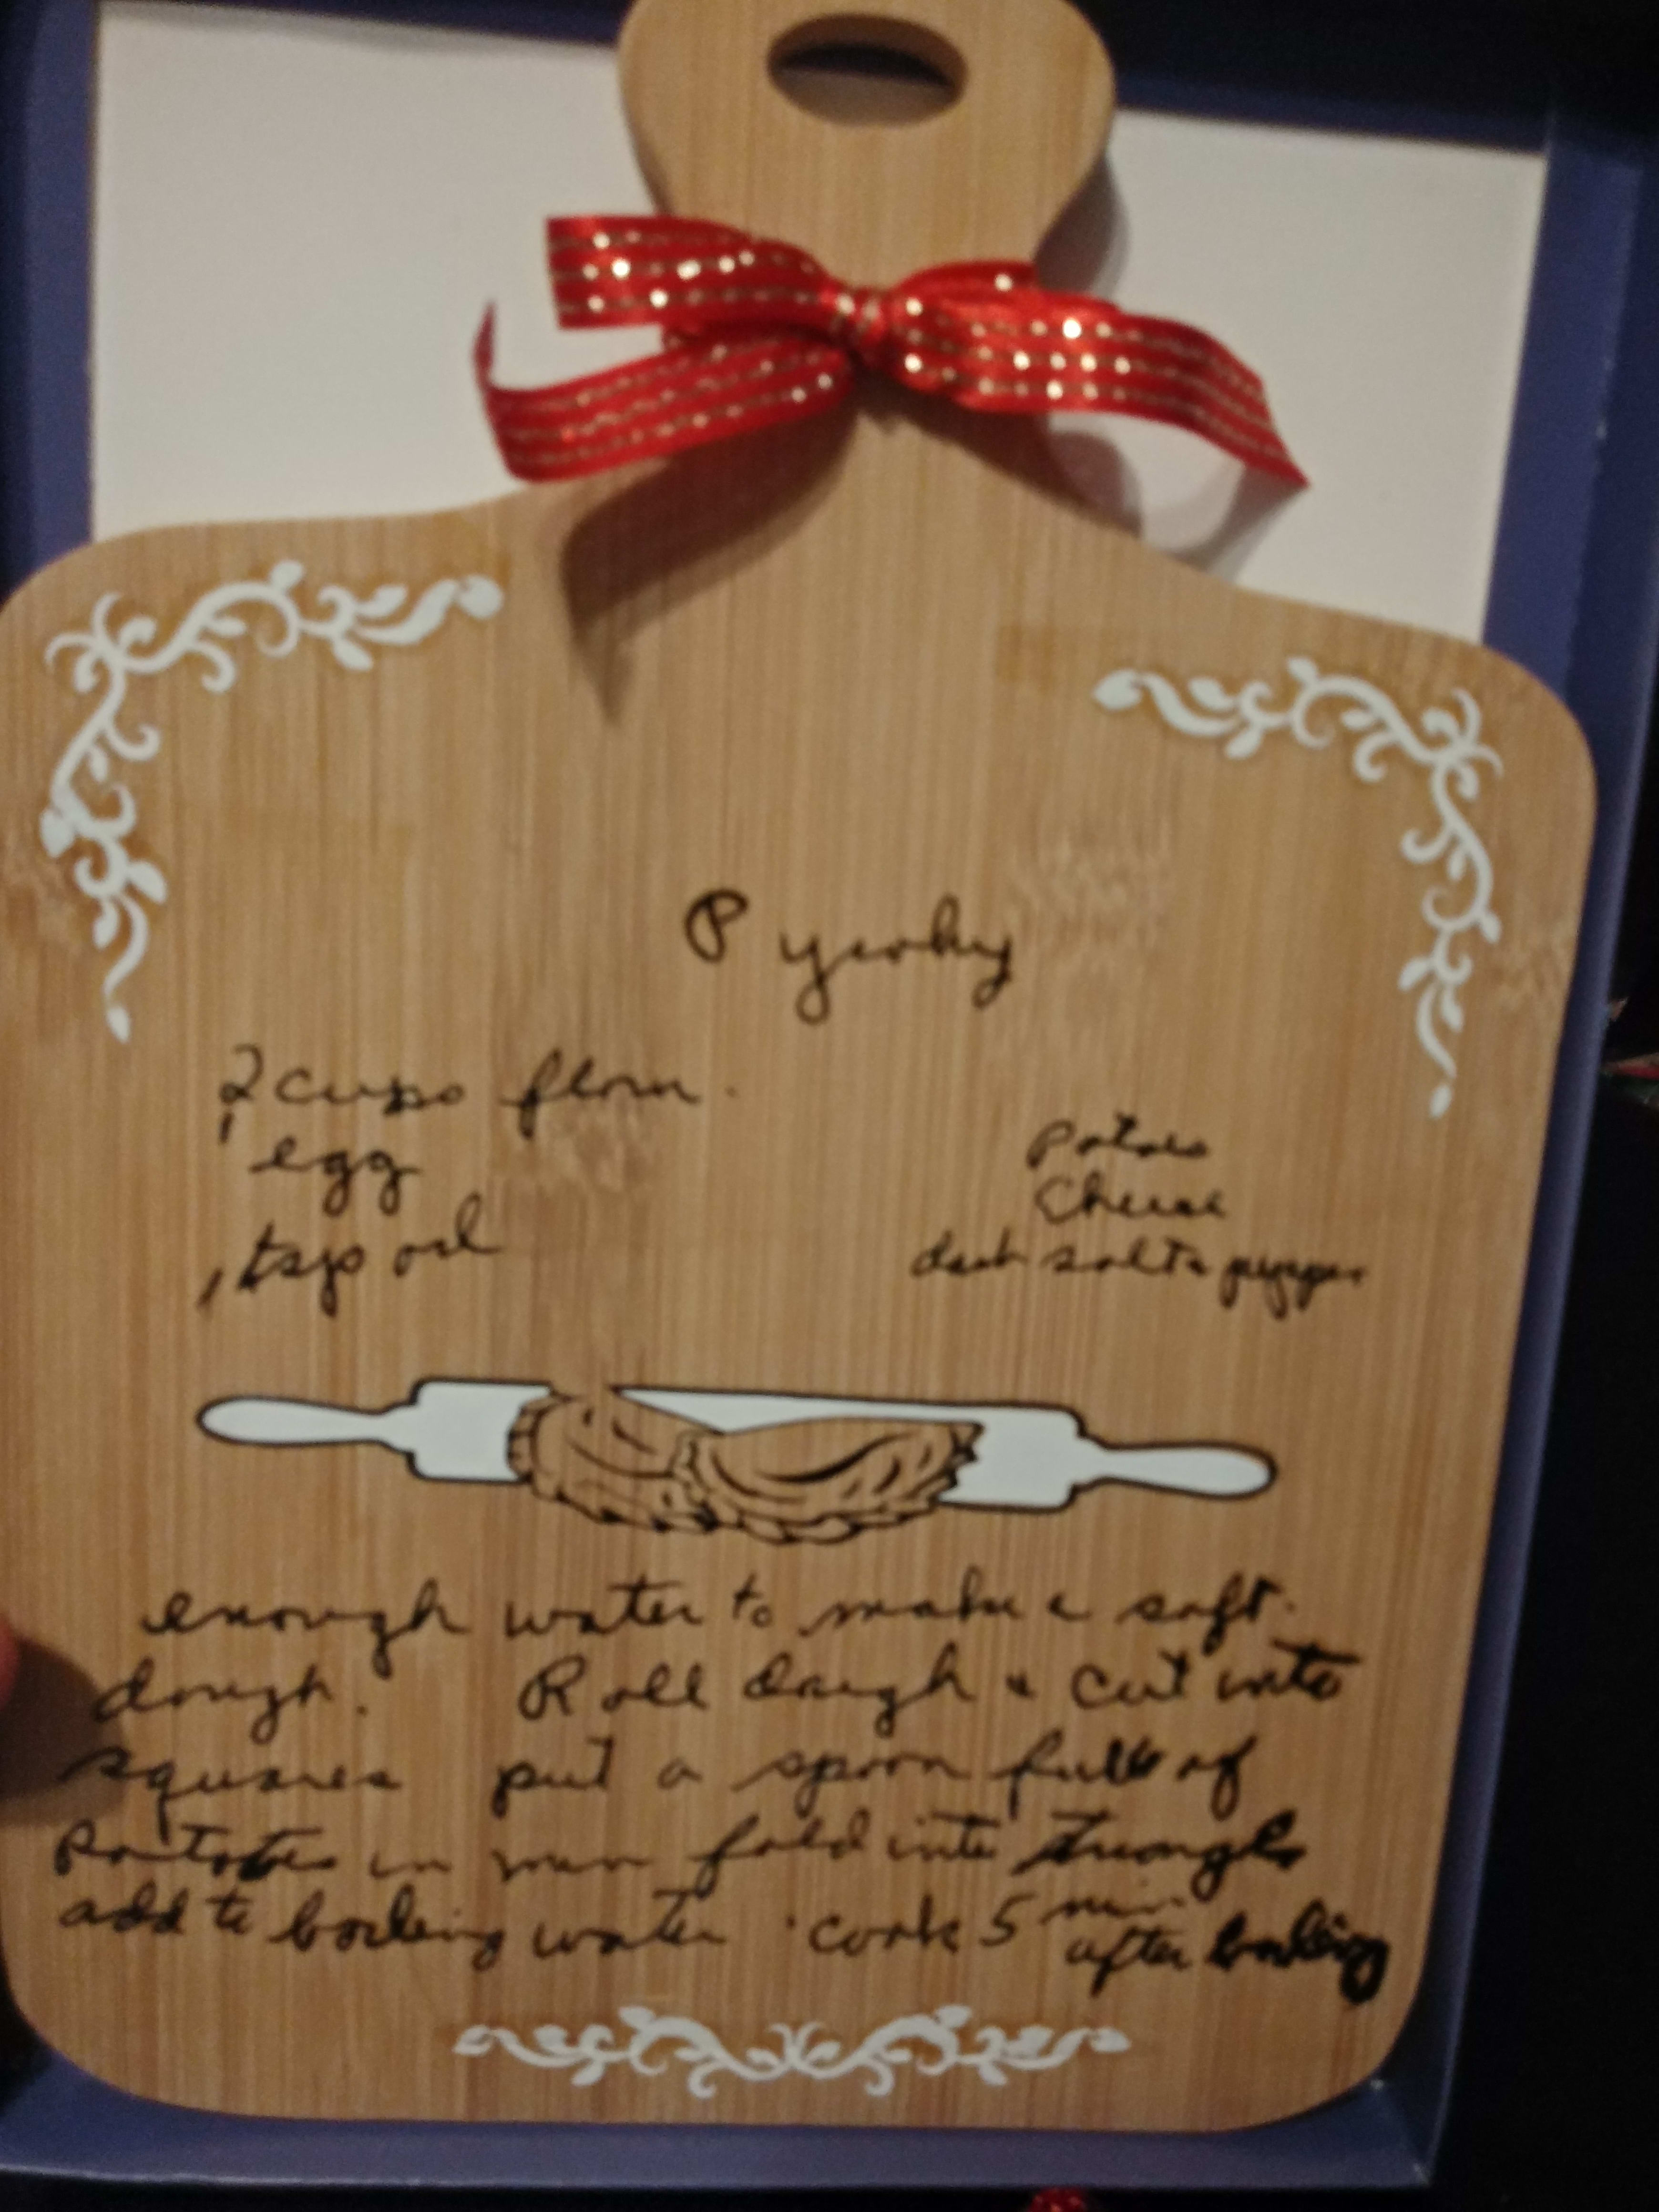 Pyrohy
2 cups flour.
1 egg
1 tsp oil
Potatoes
Cheese
dash salt & pepper
enough water to make a soft
dough. Roll dough & cut into
squares put a spoon full of
Potatoes in fold into triangle
add to boiling water cook 5 min
after boiling